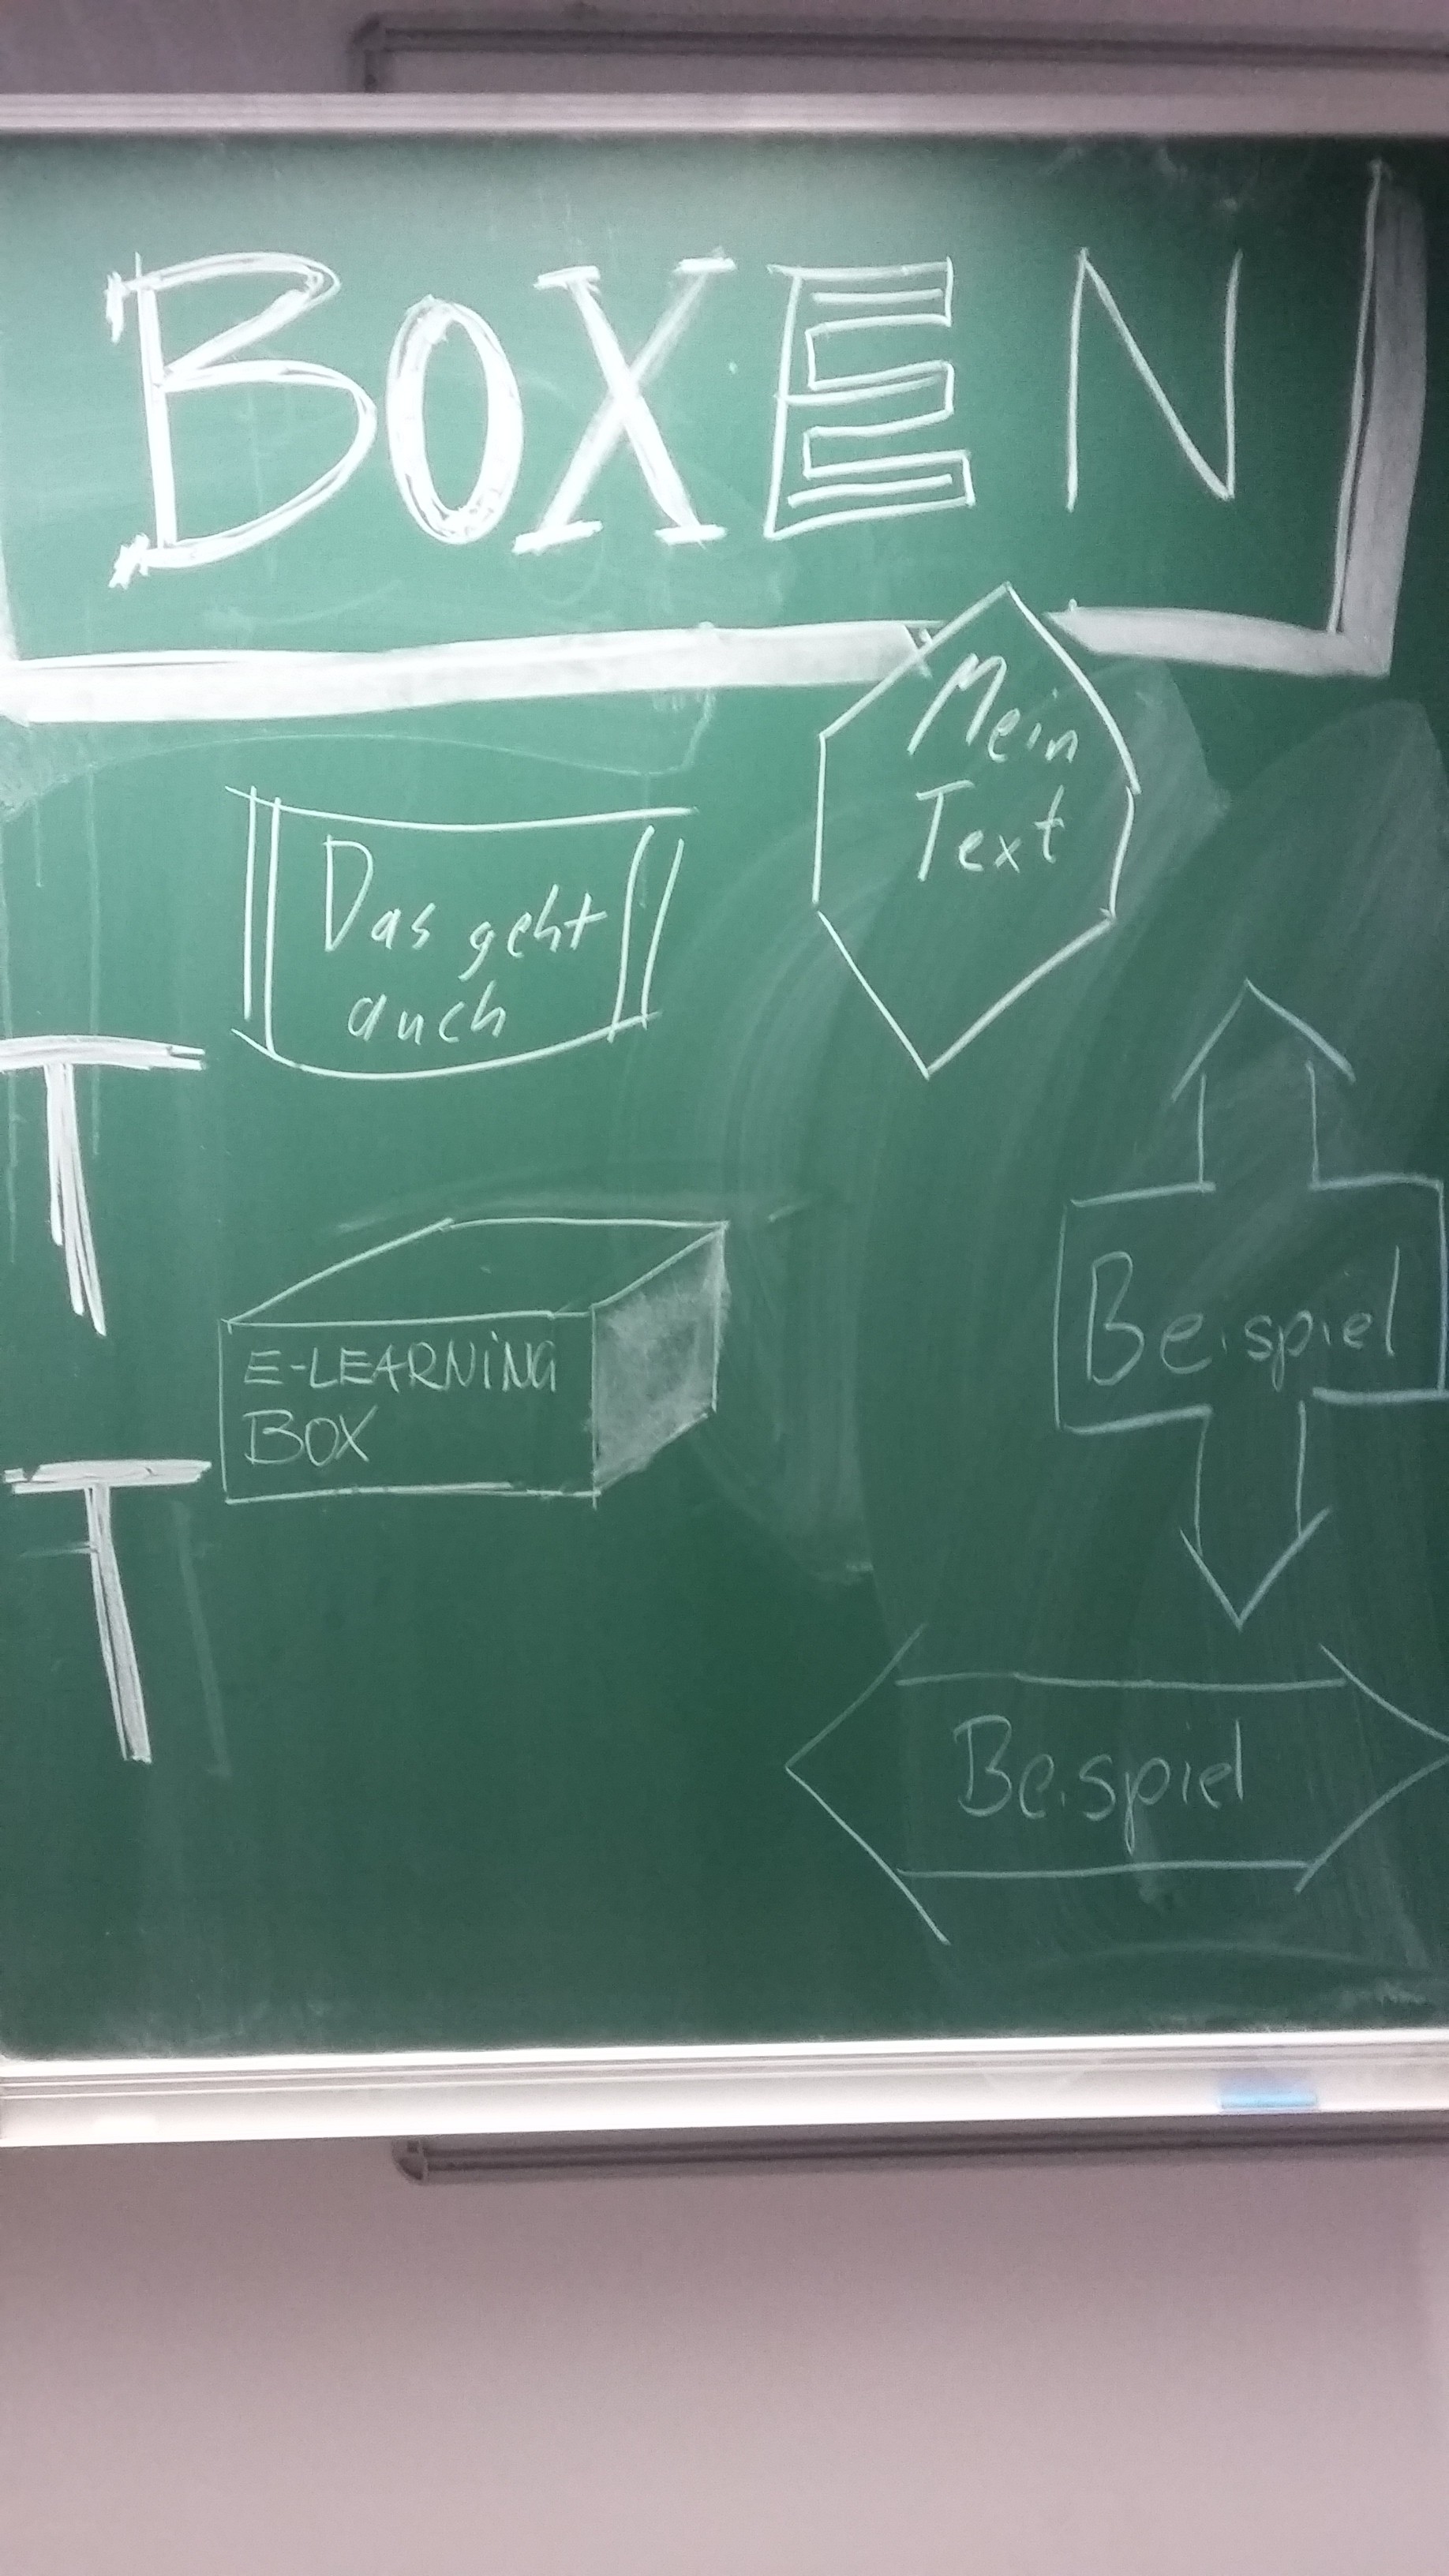 BOXEN
Mein
Text
Das geht
auch
T
E-LEARNiNG
BOX
Beispiel
T
Beispiel